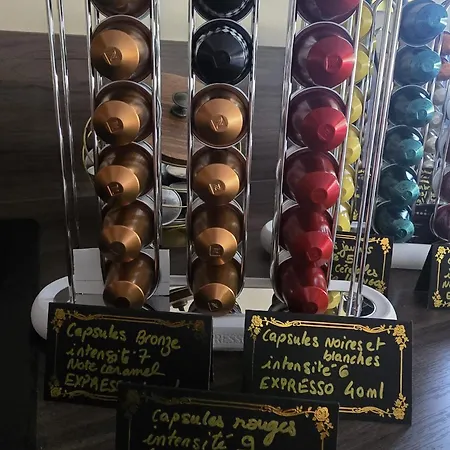 Capsules Bronze
intensité 7
Note caramel
EXPRESSO
Capsules Noires et
blanches
intensité 6
EXPRESSO 40ml
Capsules rouges
intensité 9
jaunes